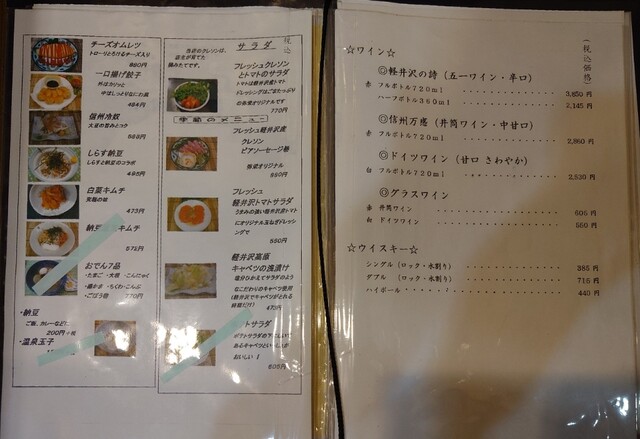 チーズオムレツ
トローリとろけるチーズ入り
880円
一口揚げ餃子
外はカリッと
中はしっとりなにわ風
484円
信州冷奴
大豆の旨みとコク
しらす納豆
しらすと納豆のコラボ
495円
白菜キムチ
473円
納豆 キムチ
572円
おでん7品
・たまご ・大根 ・こんにゃく
・ちくわ ・こんぶ
・ごぼう巻 770円
・納豆
ご飯、カレーなどに
200円
・温泉玉子
税込
サラダ
当店のクレソンは、
店主が育てた
フレッシュクレソン
とトマトのサラダ
トマトは軽井沢産トマト
ドレッシングはごまたっぷり
の当店オリジナルです
770円
季節のメニュー
フレッシュ軽井沢産
クレソン
ビアソーセージ巻
当店オリジナル
880円
フレッシュ
軽井沢トマトサラダ
うまみの強い軽井沢産トマト
にオリジナル玉ねぎドレッシ
ングで
550円
軽井沢高原
キャベツの浅漬け
塩分ひかえてサラダのよう
なこだわりのキャベツ使用
(軽井沢でキャベツがとれる
時期だけ) 473円
トサラダ
おいしい !
605円
(税込価格)
☆ワイン☆
◎軽井沢の詩 (五一ワイン・辛口)
赤 フルボトル720ml ・・・・・・・・・・ 3,850円
ハーフボトル360ml ・・・・・・・・・・ 2,145円
◎信州万感 (井筒ワイン・中甘口)
赤 フルボトル720ml ・・・・・・・・・・ 2,860円
◎ドイツワイン (甘口 さわやか)
白 フルボトル720ml ・・・・・・・・・・ 2,530円
◎グラスワイン
赤 井筒ワイン ・・・・・・・・・・ 605円
白 ドイツワイン ・・・・・・・・・・ 550円
☆ウイスキー☆
シングル (ロック・水割り) ・・・・・・・・ 385円
ダブル (ロック・水割り) ・・・・・・・・ 715円
ハイボール ・・・・・・・・・・ 440円